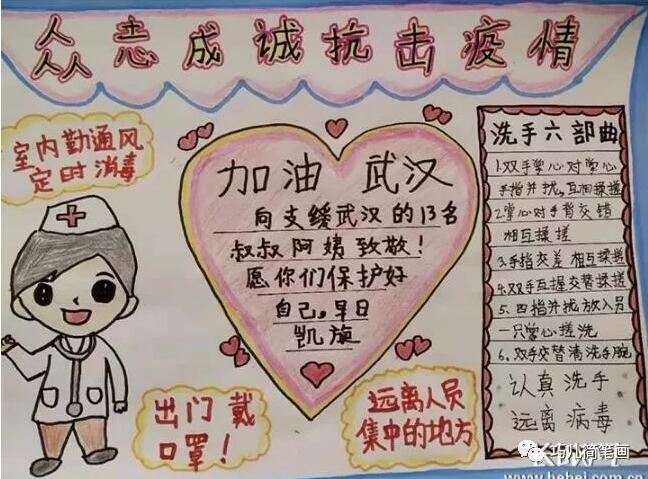 众志成诚抗击疫情
室内勤通风
定时消毒
加油 武汉
向支缓武汉的13名
叔叔阿姨致敬!
愿你们保护好
自己,早日
凯旋
洗手六部曲
1.双手掌心对掌心
手指并拢,互相揉搓
2.掌心对手背交错
相互揉搓
3.手指交差相互揉搓
4.双手互握交替揉搓
5.四指并拢放入另
一只掌心搓洗
6.双手交替清洗手腕
认真洗手
远离病毒
出门戴
口罩!
远离人员
集中的地方
巧儿简笔画
www.hebei.com.cn